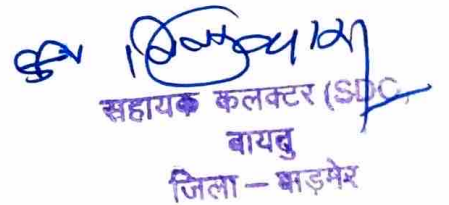 सहायक कलक्टर (SDO)
बायतु
जिला - बाड़मेर